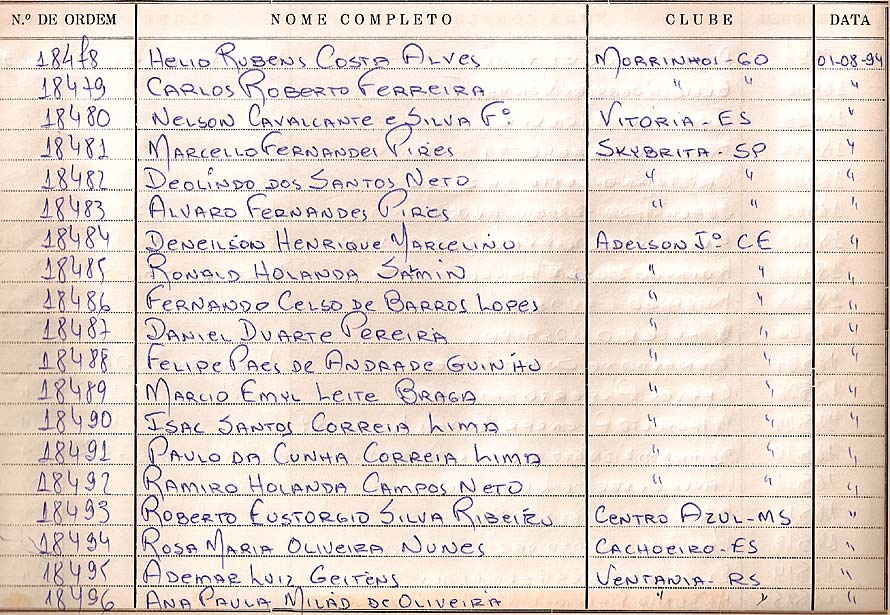 N.º DE ORDEM NOME COMPLETO CLUBE DATA
18478 HELIO RUBENS COSTA ALVES MORRINHOS-GO 01-08-94
18479 CARLOS ROBERTO FERREIRA " " "
18480 NELSON CAVALCANTE E SILVA Fº VITORIA-ES "
18481 MARCELLO FERNANDES PIRES SKYBRITA-SP "
18482 DEOLINDO DOS SANTOS NETO " " "
18483 ALVARO FERNANDES PIRES " " "
18484 DENEILSON HENRIQUE MARCELINO ADELSON Jº CE "
18485 RONALD HOLANDA SAMIN " " "
18486 FERNANDO CELSO DE BARROS LOPES " " "
18487 DANIEL DUARTE PEREIRA " " "
18488 FELIPE PAES DE ANDRADE " " "
18489 MARCIO EMYL LEITE BRAGA " " "
18490 ISAC SANTOS CORREIA LIMA " " "
18491 PAULO DA CUNHA CORREIA LIMA " " "
18492 RAMIRO HOLANDA CAMPOS NETO " " "
18493 ROBERTO EUSTORGIO SILVA RIBEIRO CENTRO AZUL-MS "
18494 ROSA MARIA OLIVEIRA NUNES CACHOEIRO-ES "
18495 ADEMAR LUIZ GEITENS VENTANIA-RS "
18496 ANA PAULA MILAD DE OLIVEIRA " " "